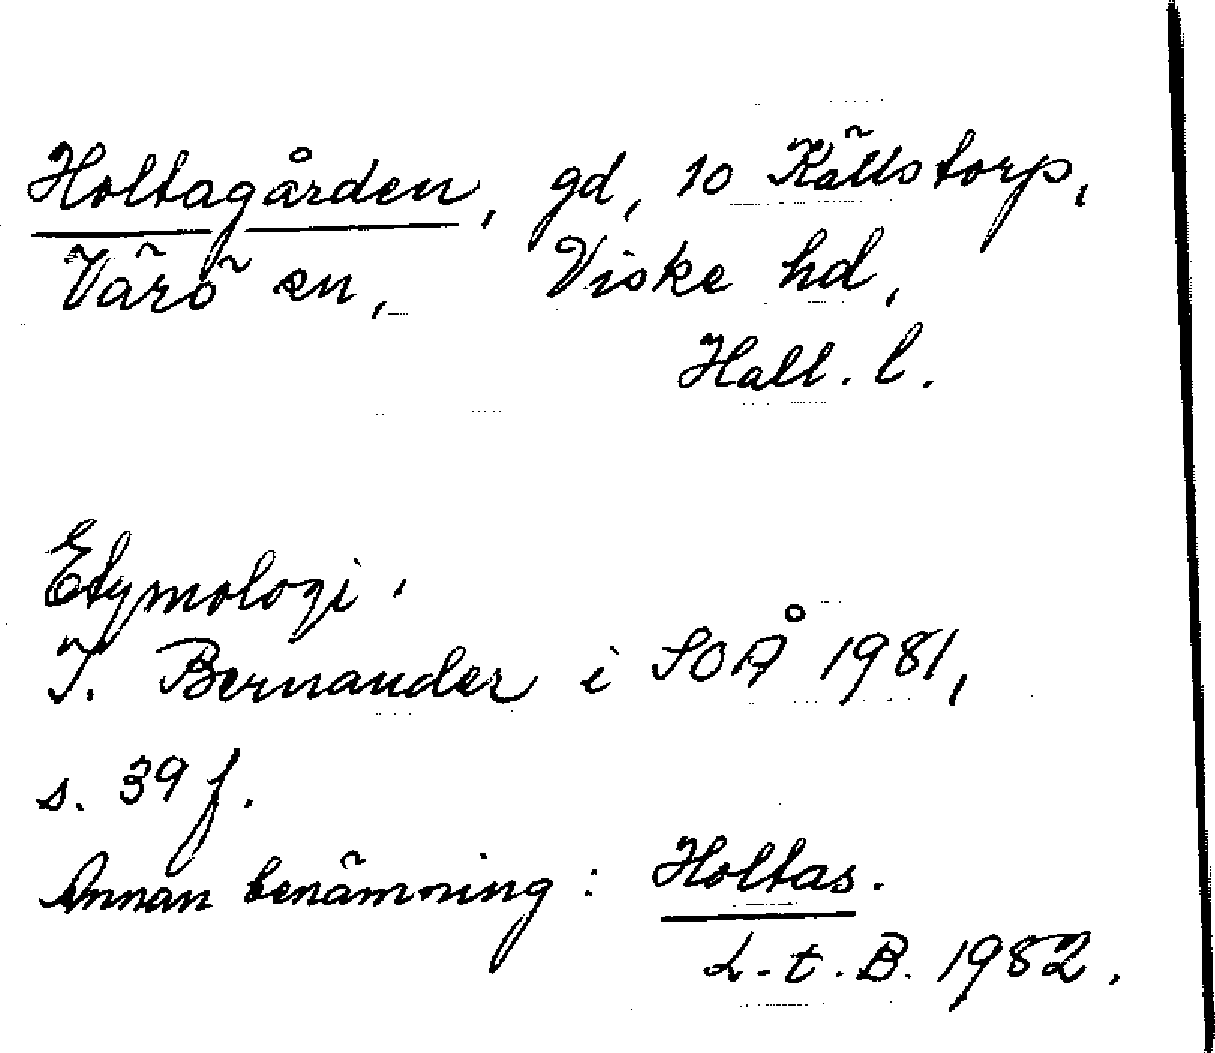 Holtagården, gd, 10 Källstorp,
Värö sn, Viske hd,
Hall. l.
Etymologi.
I. Bernander i SOÅ 1981,
s. 39 f.
Annan benämning: Holtas.
L.t.B. 1982.